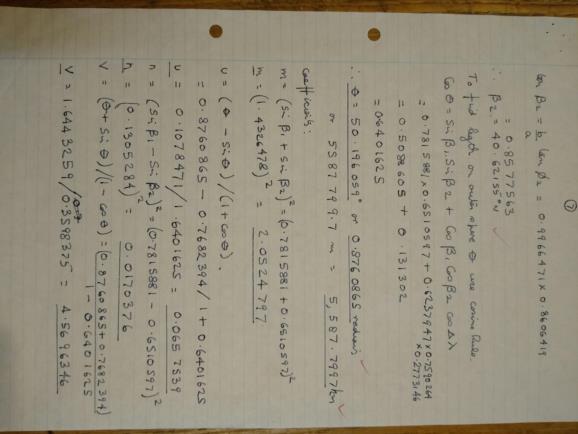 7
tan β2 = b/a tan β2 = 0.9966471 x 0.8606419
= 0.8577563
∴ β2 = 40.62155°N ✓
To find length on outer sphere θ use cosine Rule.
Cos θ = Sin β1. Sin β2 + Cos β1 Cos β2 cos Δλ
= 0.7815881 x 0.6510597 + 0.6237947 x 0.7590264 x 0.2773146
= 0.5088605 + 0.131302
= 0.6401625
∴ θ = 50.196059° or 0.8760865 radians ✓
or 5587799.7 m = 5,587.7997 km ✓
Coefficients:
m = (sin β1 + sin β2)² = (0.7815881 + 0.6510597)²
m = (1.4326478)² = 2.0524797
u = (θ - sin θ) / (1 + cos θ).
= 0.8760865 - 0.7682394 / 1 + 0.6401625
u = 0.1078471 / 1.6401625 = 0.0657539
n = (Sin β1 - Sin β2)² = (0.7815881 - 0.6510597)²
n = (0.1305284)² = 0.0170376
V = (θ + Sin θ) / (1 - cos θ) = (0.8760865 + 0.7682394) / 1 - 0.6401625
V = 1.6443259 / 0.3598375 = 4.5696346